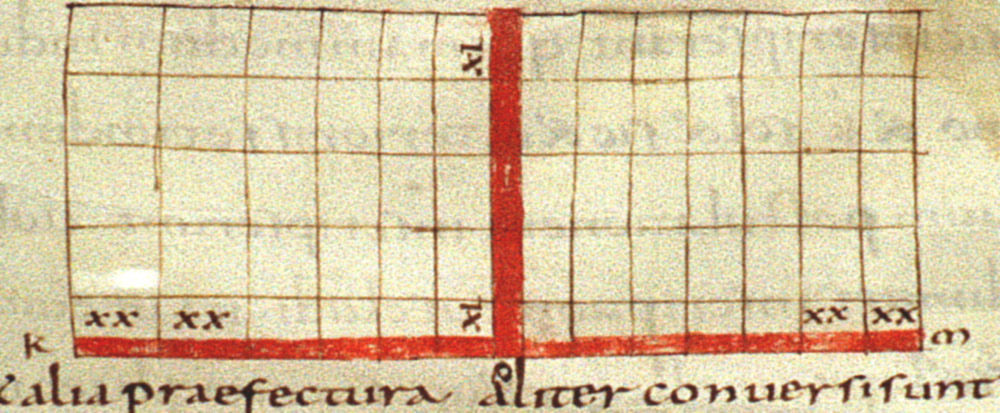 xl
xx xx xl xx xx
k m
d
alia praefectura aliter conuersi sunt